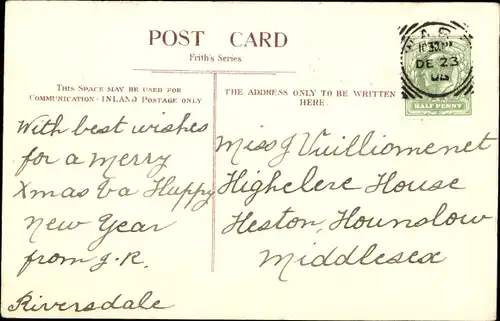 POST CARD
Frith's Series
THIS SPACE MAY BE USED FOR
COMMUNICATION-INLAND POSTAGE ONLY
THE ADDRESS ONLY TO BE WRITTEN
HERE.
DE 23
HALF PENNY
With best wishes
for a Merry
Xmas & a Happy
New Year
from J.R.
Riversdale
Miss J Vuilliomenet
Highclere House
Heston, Hounslow
Middlesex